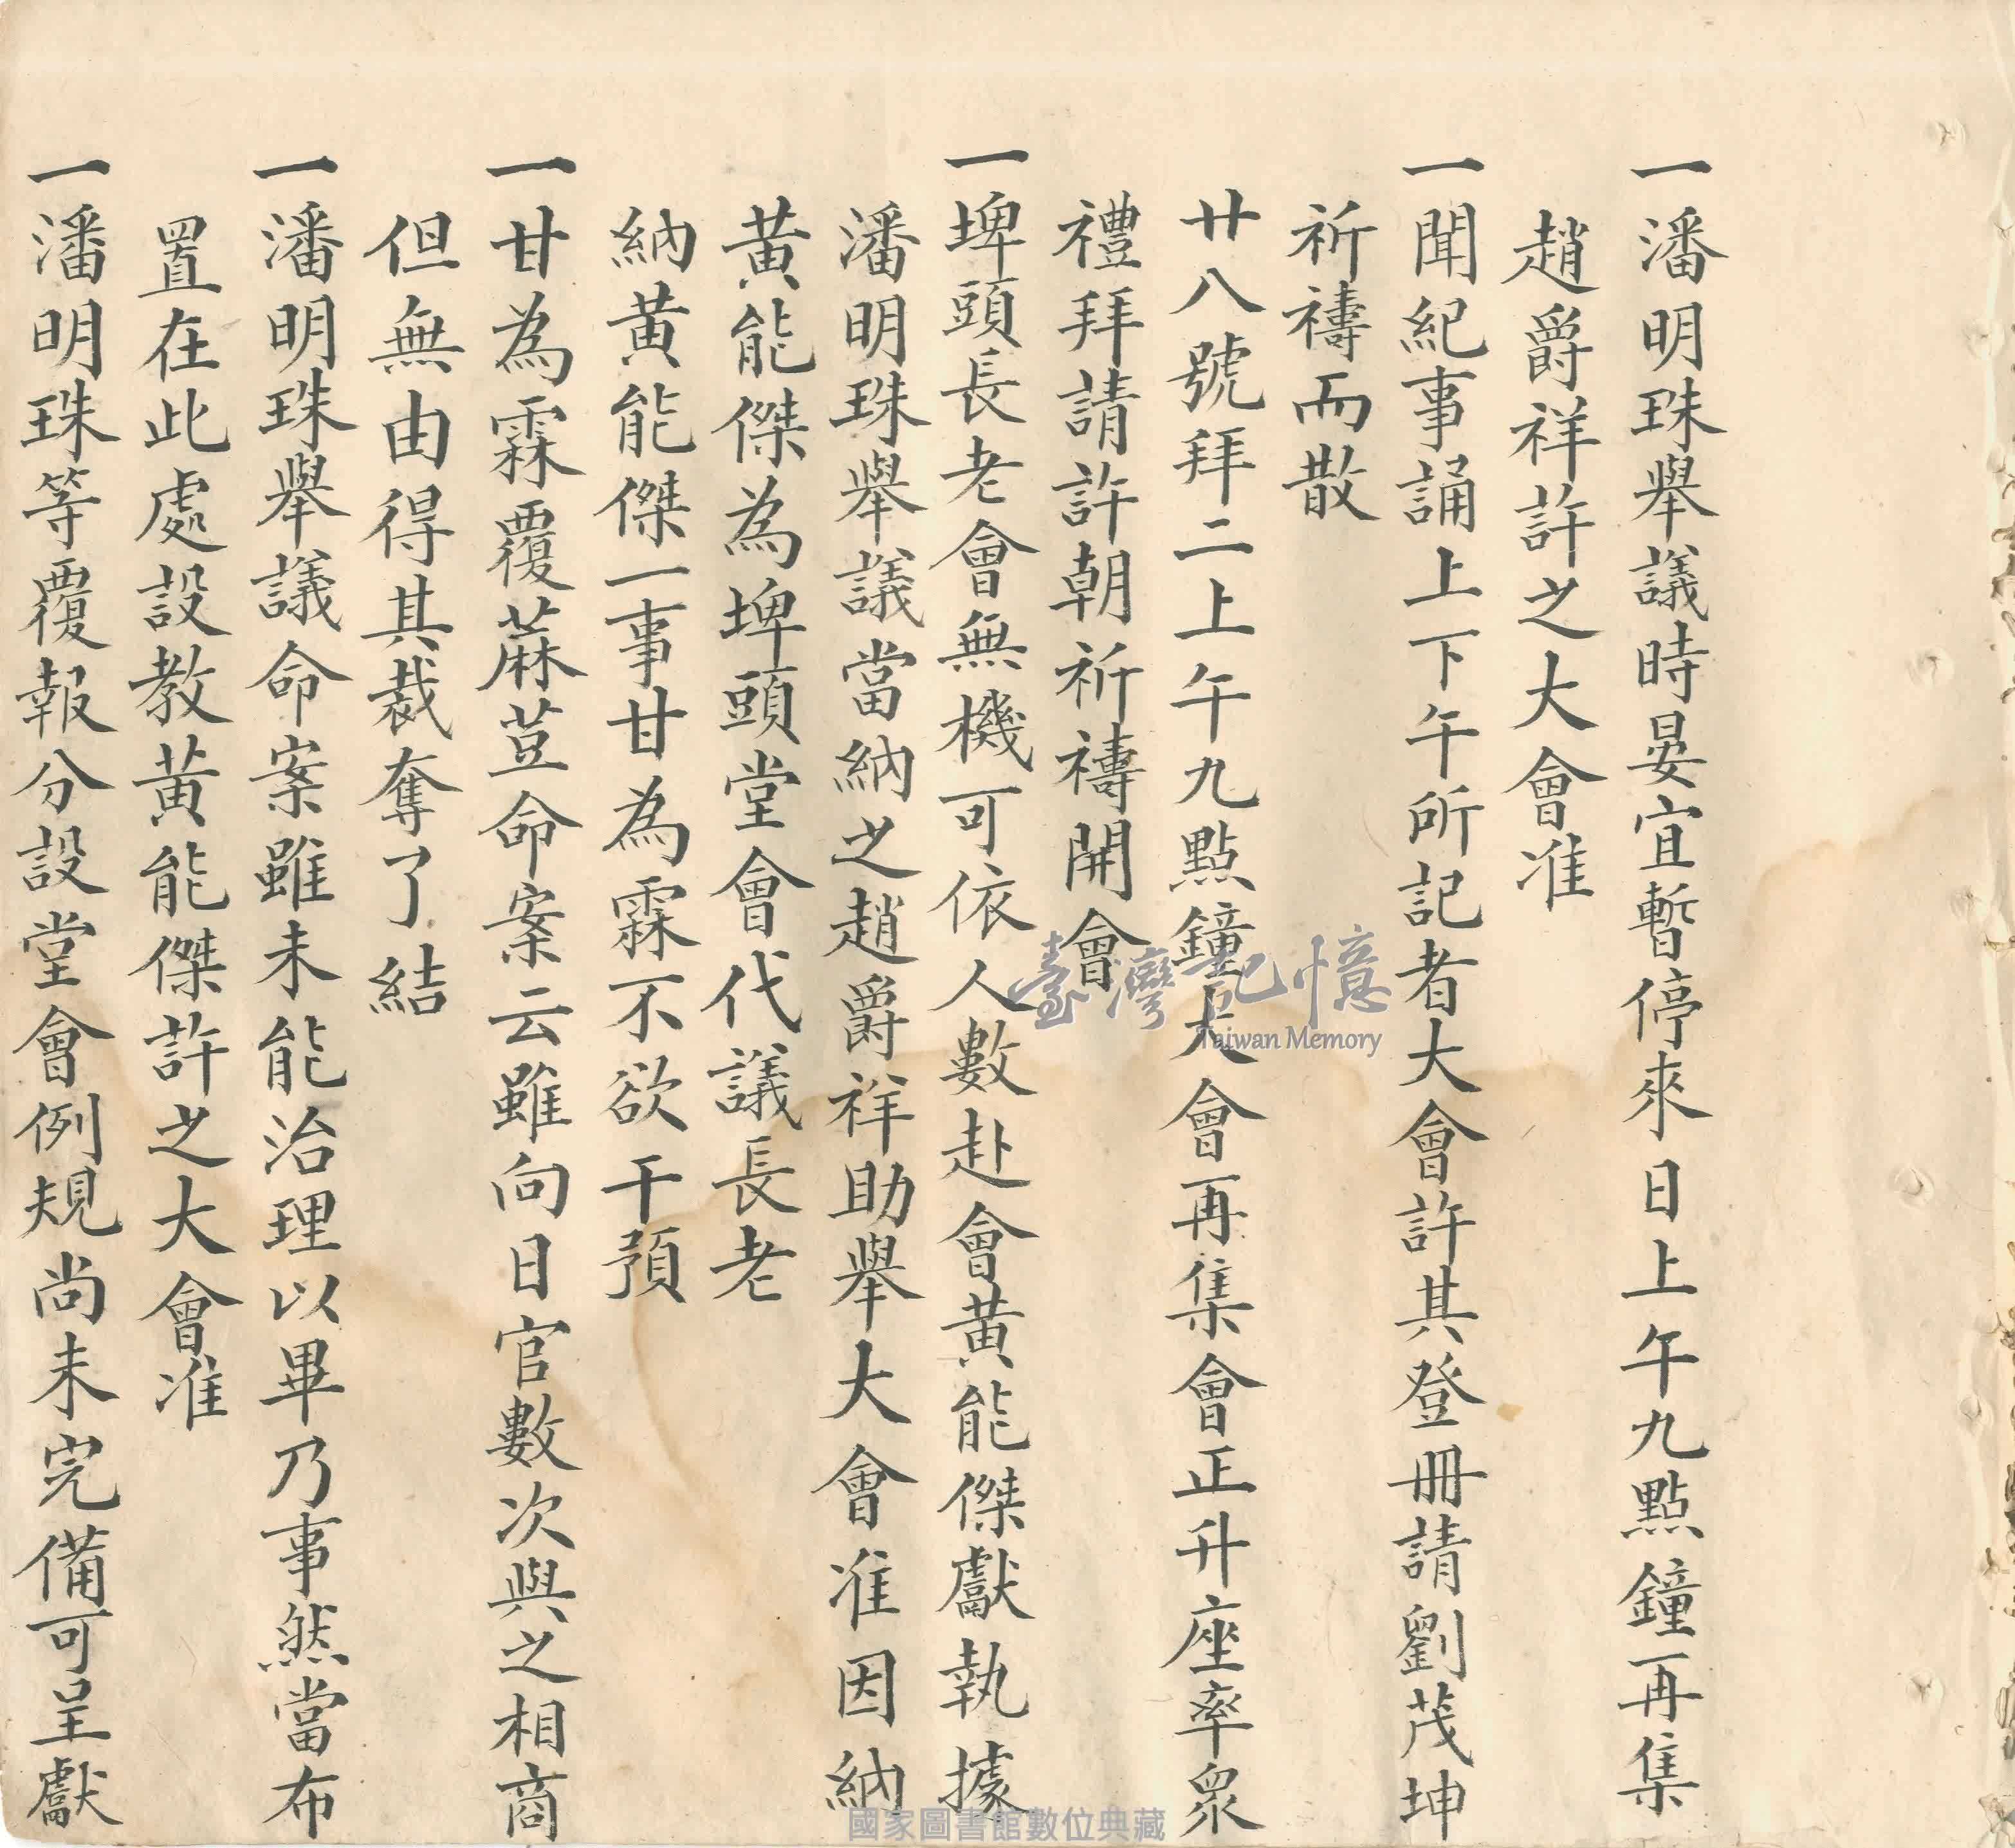 一潘明珠舉議時晏宜暫停來日上午九點鐘再集
趙爵祥許之大會准
一聞紀事誦上下午所記者大會許其登冊請劉茂坤
祈禱而散
廿八號拜二上午九點鐘大會再集會正升座率眾
禮拜請許朝祈禱開會
一埤頭長老會無機可依人數赴會黃能傑獻執據
潘明珠舉議當納之趙爵祥助舉大會准因納
黃能傑為埤頭堂會代議長老
納黃能傑一事甘為霖不欲干預
一甘為霖覆蔴荳命案云雖向日官數次與之相商
但無由得其裁奪了結
一潘明珠舉議命案雖未能治理以畢乃事然當布
置在此處設教黃能傑許之大會准
一潘明珠等覆報分設堂會例規尚未完備可呈獻
臺灣記憶
Taiwan Memory
國家圖書館數位典藏